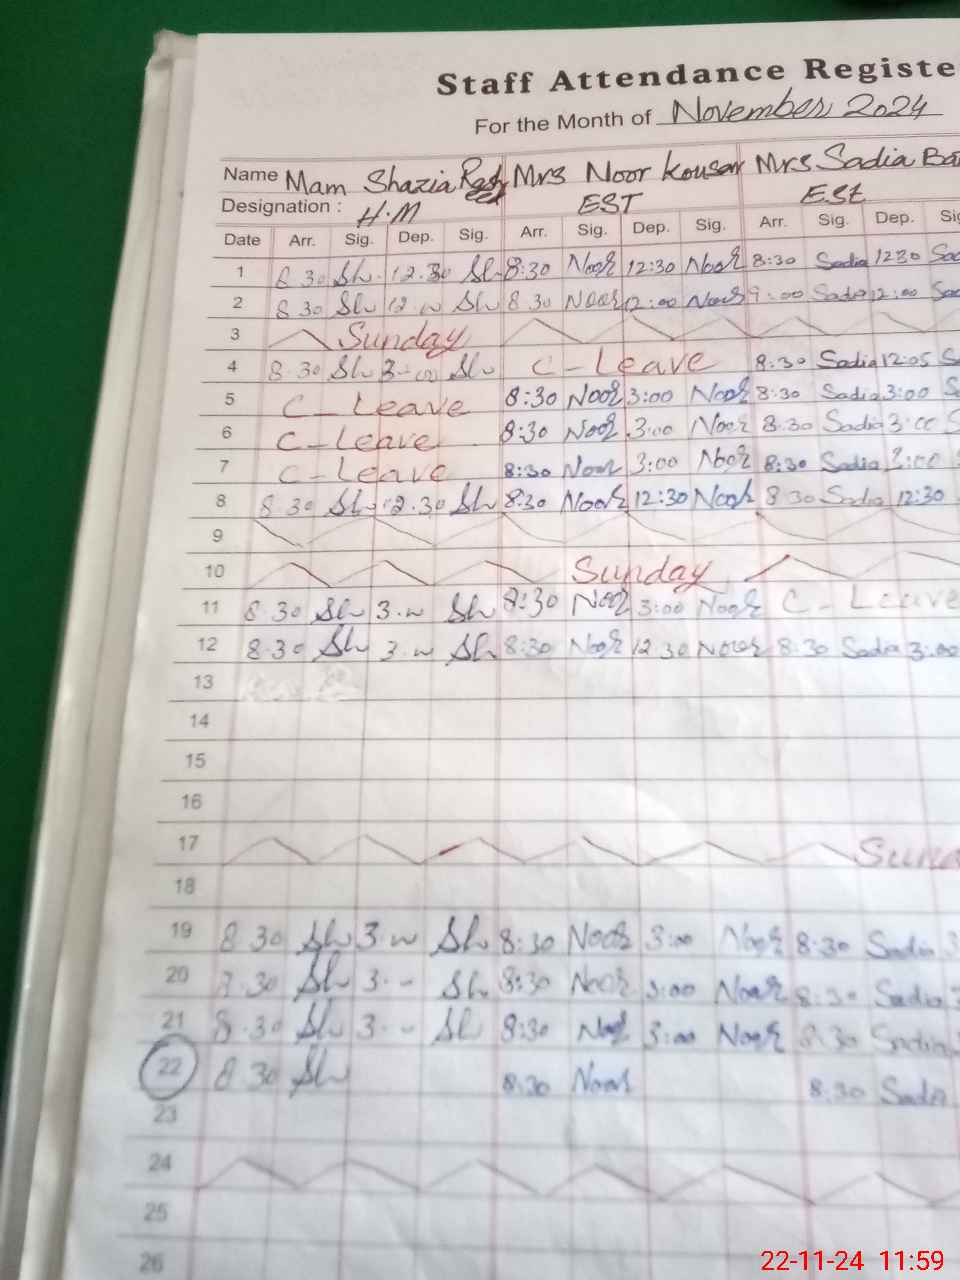 Staff Attendance Registe
For the Month of November 2024
Name Mam Shazia Mrs Noor Kousar Mrs Sadia Ba
Designation : H.M EST EST
Date Arr. Sig. Dep. Sig. Arr. Sig. Dep. Sig. Arr. Sig. Dep. Sig
1 8 30 Sh 12.30 Sh 8:30 Noor 12:30 Noor 8:30 Sadia 1230 Sad
2 8 30 Sh Sh 8 30 Noor 12:00 Noor 9:00 Sadia 12:00 Sad
3 Sunday
4 8 30 Sh Sh C-Leave 8:30 Sadia 12:05 S
5 C-Leave 8:30 Noor 3:00 Noor 8:30 Sadia 3:00 S
6 C-Leave 8:30 Noor 3:00 Noor 8:30 Sadia 3:00 S
7 C-Leave 8:30 Noor 3:00 Noor 8:30 Sadia 3:00
8 8 30 Sh 12.30 Sh 8:30 Noor 12:30 Noor 8 30 Sadia 12:30
9
10 Sunday
11 8.30 Sh Sh 8:30 Noor 3:00 Noor C-Leave
12 8.30 Sh Sh 8:30 Noor 12 30 Noor 8:30 Sadia 3:00
13
14
15
16
17 Sund
18
19 8 30 Sh Sh 8:30 Noor 3:00 Noor 8:30 Sadia 3
20 8.30 Sh Sh 8:30 Noor 3:00 Noor 8:30 Sadia
21 8.30 Sh Sh 8:30 Noor 3:00 Noor 8:30 Sadia
22 8 30 Sh 8:30 Noor 8:30 Sadia
23
24
25
26
22-11-24 11:59